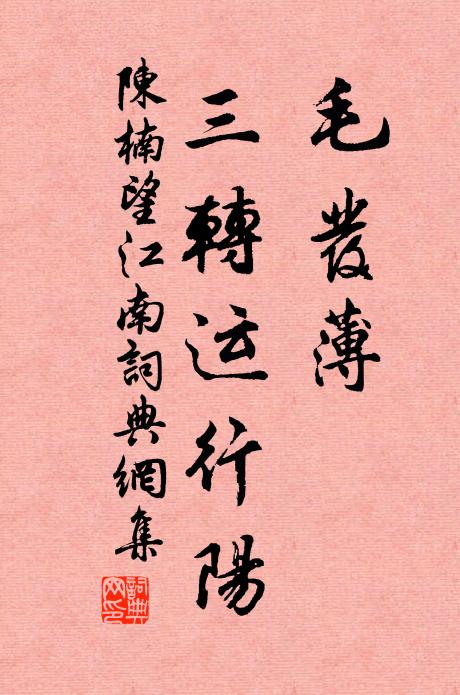 毛發薄
三轉运行陽
陳楠望江南詞典網集
詞典
网印